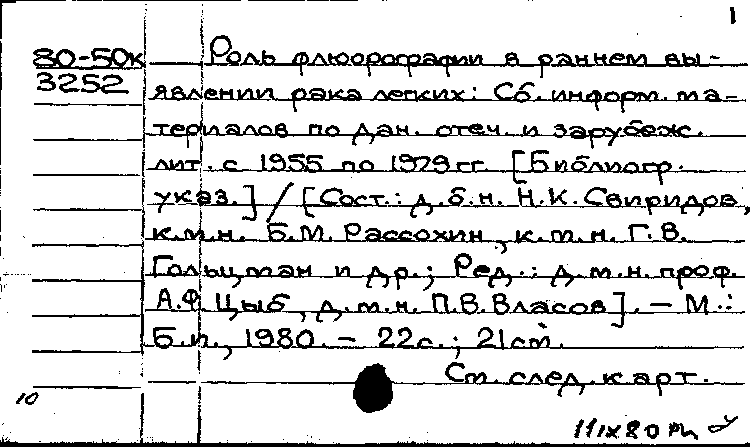 1
80-50к Роль флюорографии в раннем вы-
3252 явлении рака легких: Сб. информ. ма-
териалов по дан. отеч. и зарубеж.
лит. с 1955 по 1979 гг. [Библиогр.
указ.] / [Сост.: д.б.н. Н.К. Свиридов,
к.м.н. Б.М. Рассохин, к.м.н. Г.В.
Гольцман и др.; Ред.: д.м.н. проф.
А.Ф. Цыб, д.м.н. П.В. Власов]. - М.:
Б.и., 1980. - 22с.; 21см.
См. след. карт.
10